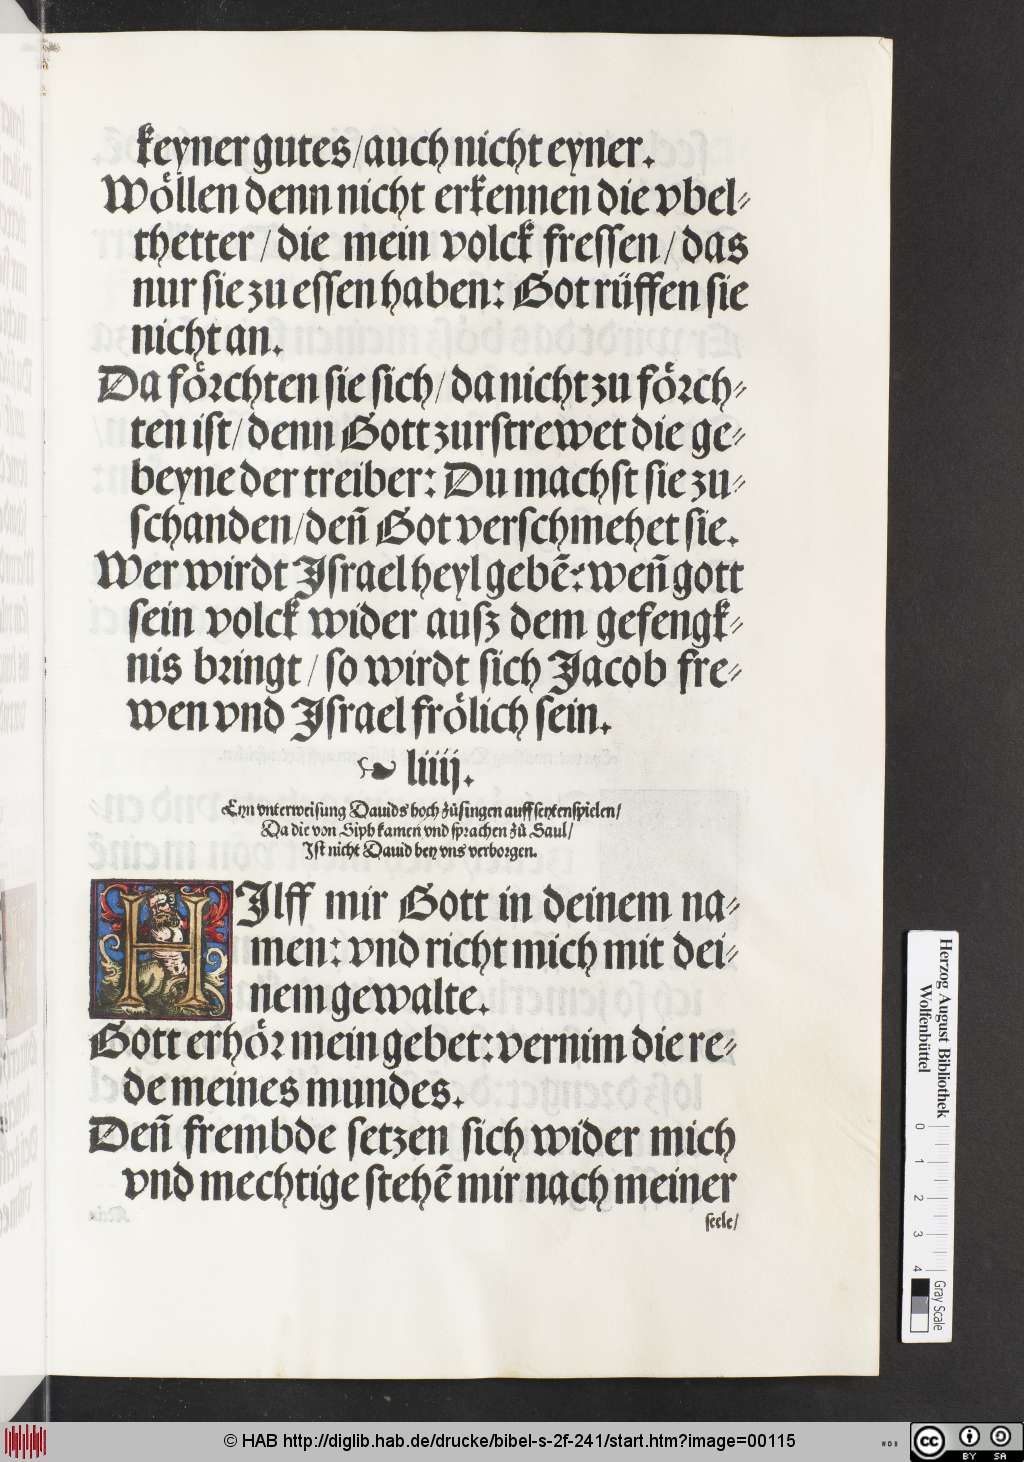 keyner gutes/auch nicht eyner.
Wöllen denn nicht erkennen die vbel⸗
thetter/die mein volck fressen/das
nur sie zu essen haben: Got rüffen sie
nicht an.
Da förchten sie sich/da nicht zu förch⸗
ten ist/denn Gott zurstrewet die ge⸗
beyne der treiber: Du machst sie zu⸗
schanden/deñ Got verschmehet sie.
Wer wirdt Israel heyl gebẽ: weñ gott
sein volck wider außz dem gefengk⸗
nis bringt/so wirdt sich Jacob fre⸗
wen vnd Israel frölich sein.
liiij.
Eyn vnterweisung Dauids hoch zů singen auff seytenspielen/
Da die von Siph kamen vnd sprachen zů Saul/
Ist nicht Dauid bey vns verborgen.
HIlff mir Gott in deinem na⸗
men: vnd richt mich mit dei⸗
nem gewalte.
Gott erhör mein gebet: vernim die re⸗
de meines mundes.
Deñ frembde setzen sich wider mich
vnd mechtige stehẽ mir nach meiner
seele/
Herzog August Bibliothek
Wolfenbüttel
0 1 2 3 4
Gray Scale
© HAB http://diglib.hab.de/drucke/bibel-s-2f-241/start.htm?image=00115
WDB
cc BY SA